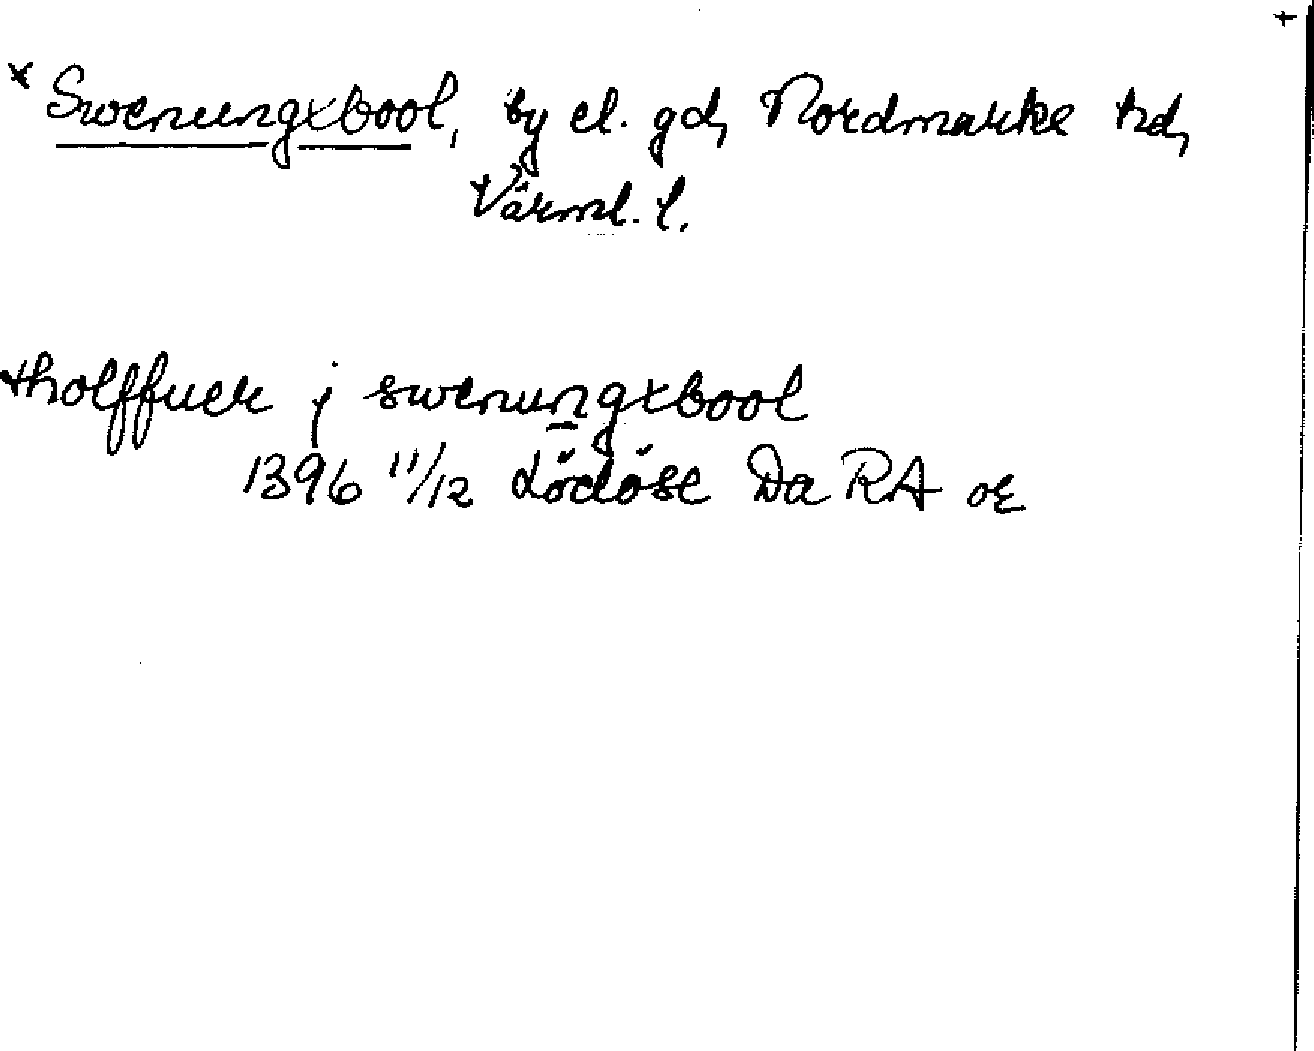 +
× Swenungxbool, by el. gd, Nordmarks hd,
Värml. l.
tholffuer j swenungxbool
1396 11/12 Lödöse Da RA or